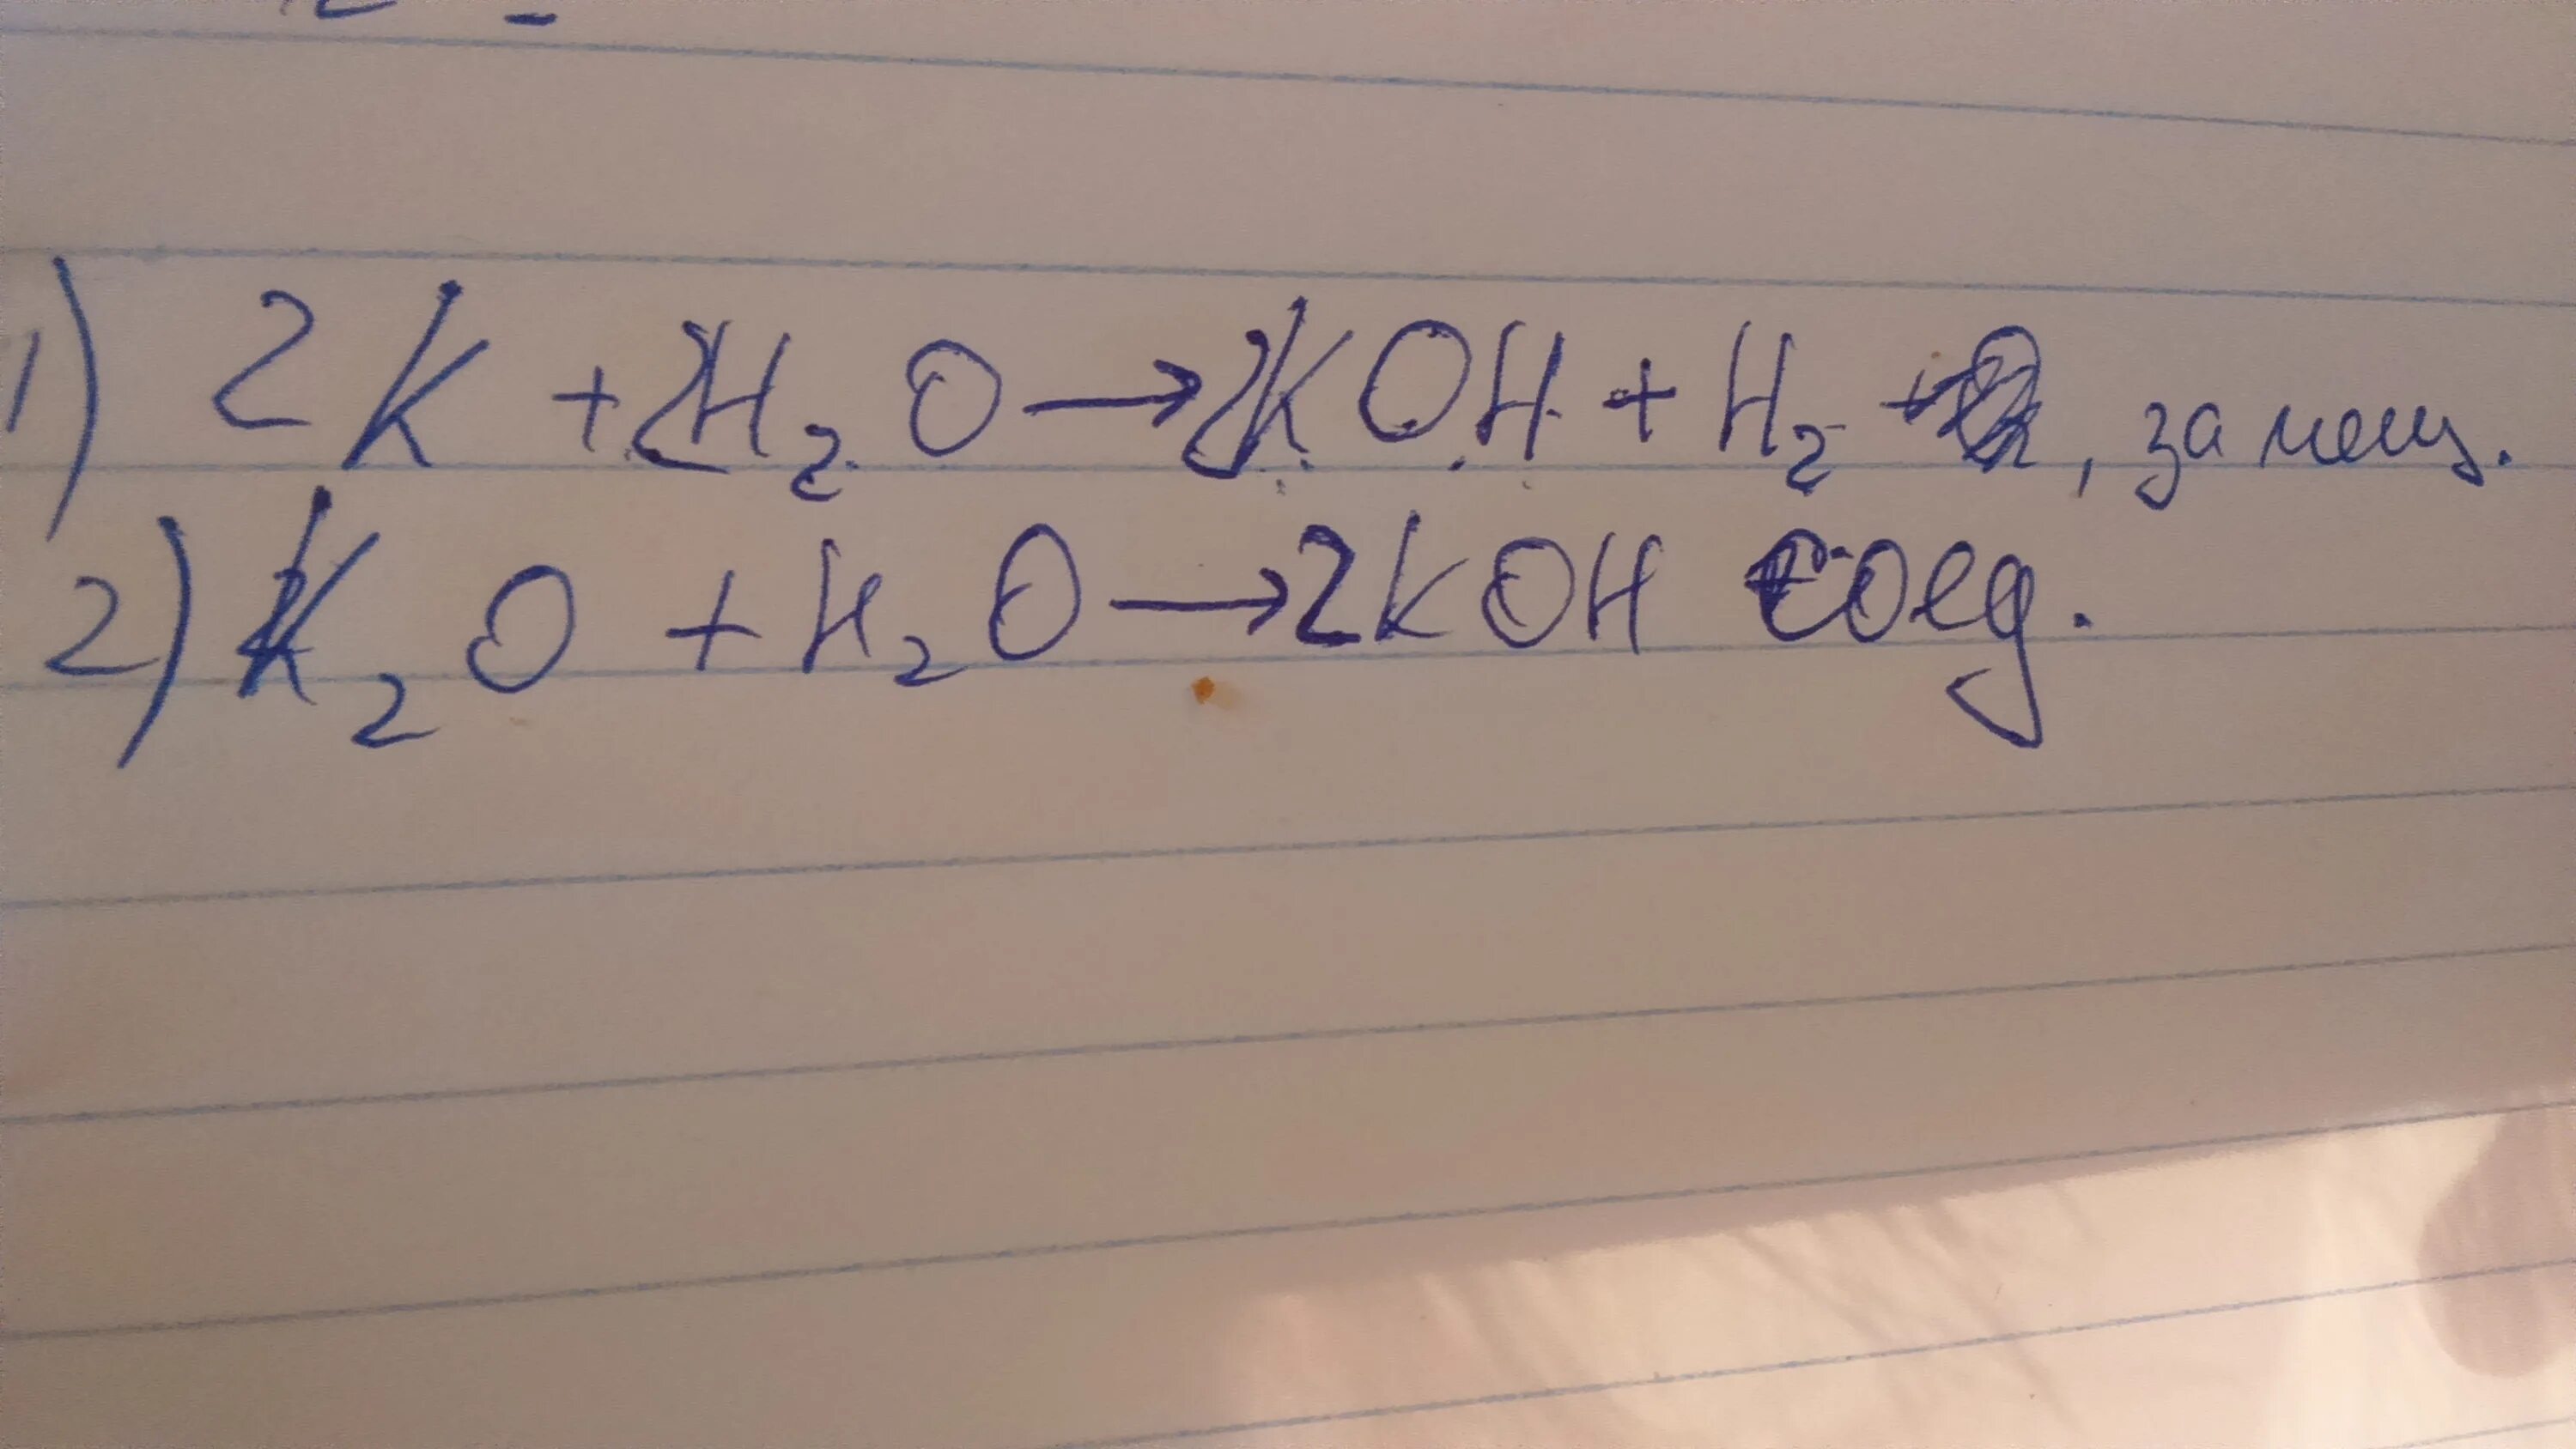 1) 2K + 2H₂O → 2KOH + H₂, замещ.
2) K₂O + H₂O → 2KOH соед.